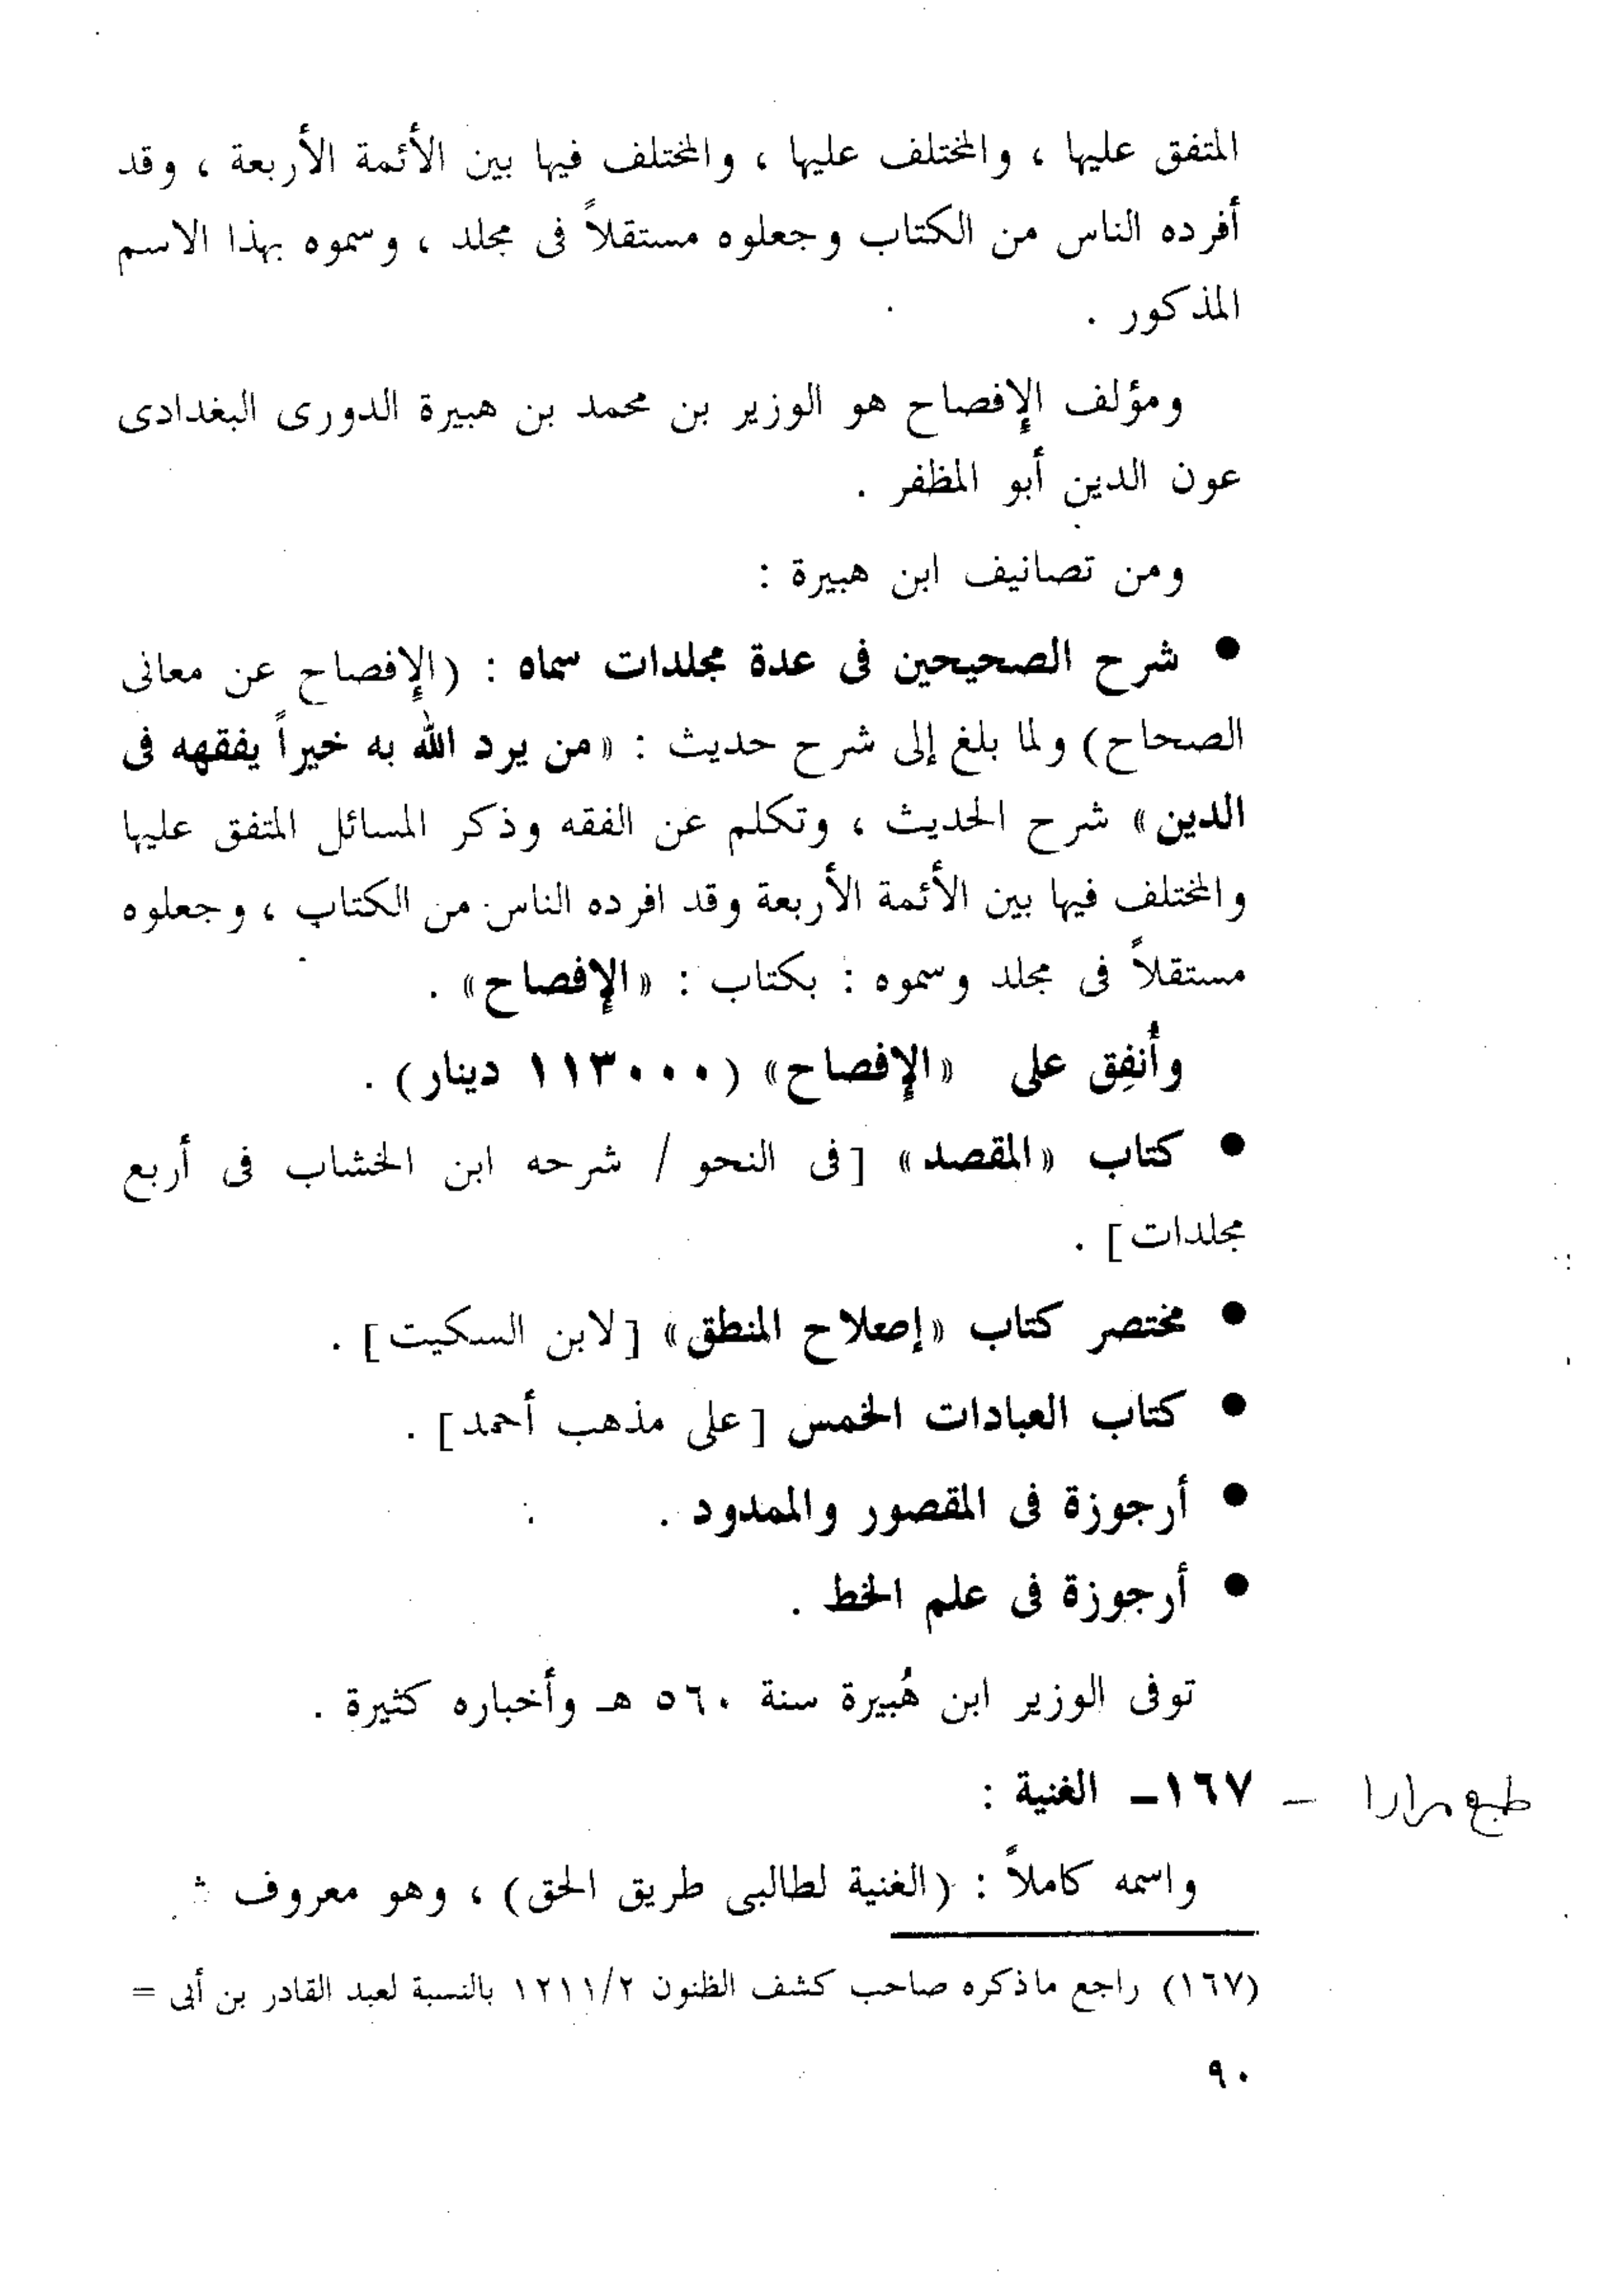 المتفق عليها ، والمختلف عليها ، والمختلف فيها بين الأئمة الأربعة ، وقد
أفرده الناس من الكتاب وجعلوه مستقلاً فى مجلد ، وسموه بهذا الاسم
المذكور .
ومؤلف الإفصاح هو الوزير بن محمد بن هبيرة الدورى البغدادى
عون الدين أبو المظفر .
ومن تصانيف ابن هبيرة :
● شرح الصحيحين فى عدة مجلدات سماه : (الإفصاح عن معانى
الصحاح) ولما بلغ إلى شرح حديث : «من يرد الله به خيراً يفقهه فى
الدين» شرح الحديث ، وتكلم عن الفقه وذكر المسائل المتفق عليها
والمختلف فيها بين الأئمة الأربعة وقد افرده الناس من الكتاب ، وجعلوه
مستقلاً فى مجلد وسموه : بكتاب : «الإفصاح» .
وأُنفِق على «الإفصاح» (١١٣٠٠٠ دينار) .
● كتاب «المقصد» [فى النحو / شرحه ابن الخشاب فى أربع
مجلدات] .
● مختصر كتاب «إصلاح المنطق» [لابن السكيت] .
● كتاب العبادات الخمس [على مذهب أحمد] .
● أرجوزة فى المقصور والممدود .
● أرجوزة فى علم الخط .
توفى الوزير ابن هُبيرة سنة ٥٦٠ هـ وأخباره كثيرة .
طبع مرارا – ١٦٧ـ الغنية :
واسمه كاملاً : (الغنية لطالبى طريق الحق) ، وهو معروف
(١٦٧) راجع ماذكره صاحب كشف الظنون ١٢١١/٢ بالنسبة لعبد القادر بن أبى =
٩٠